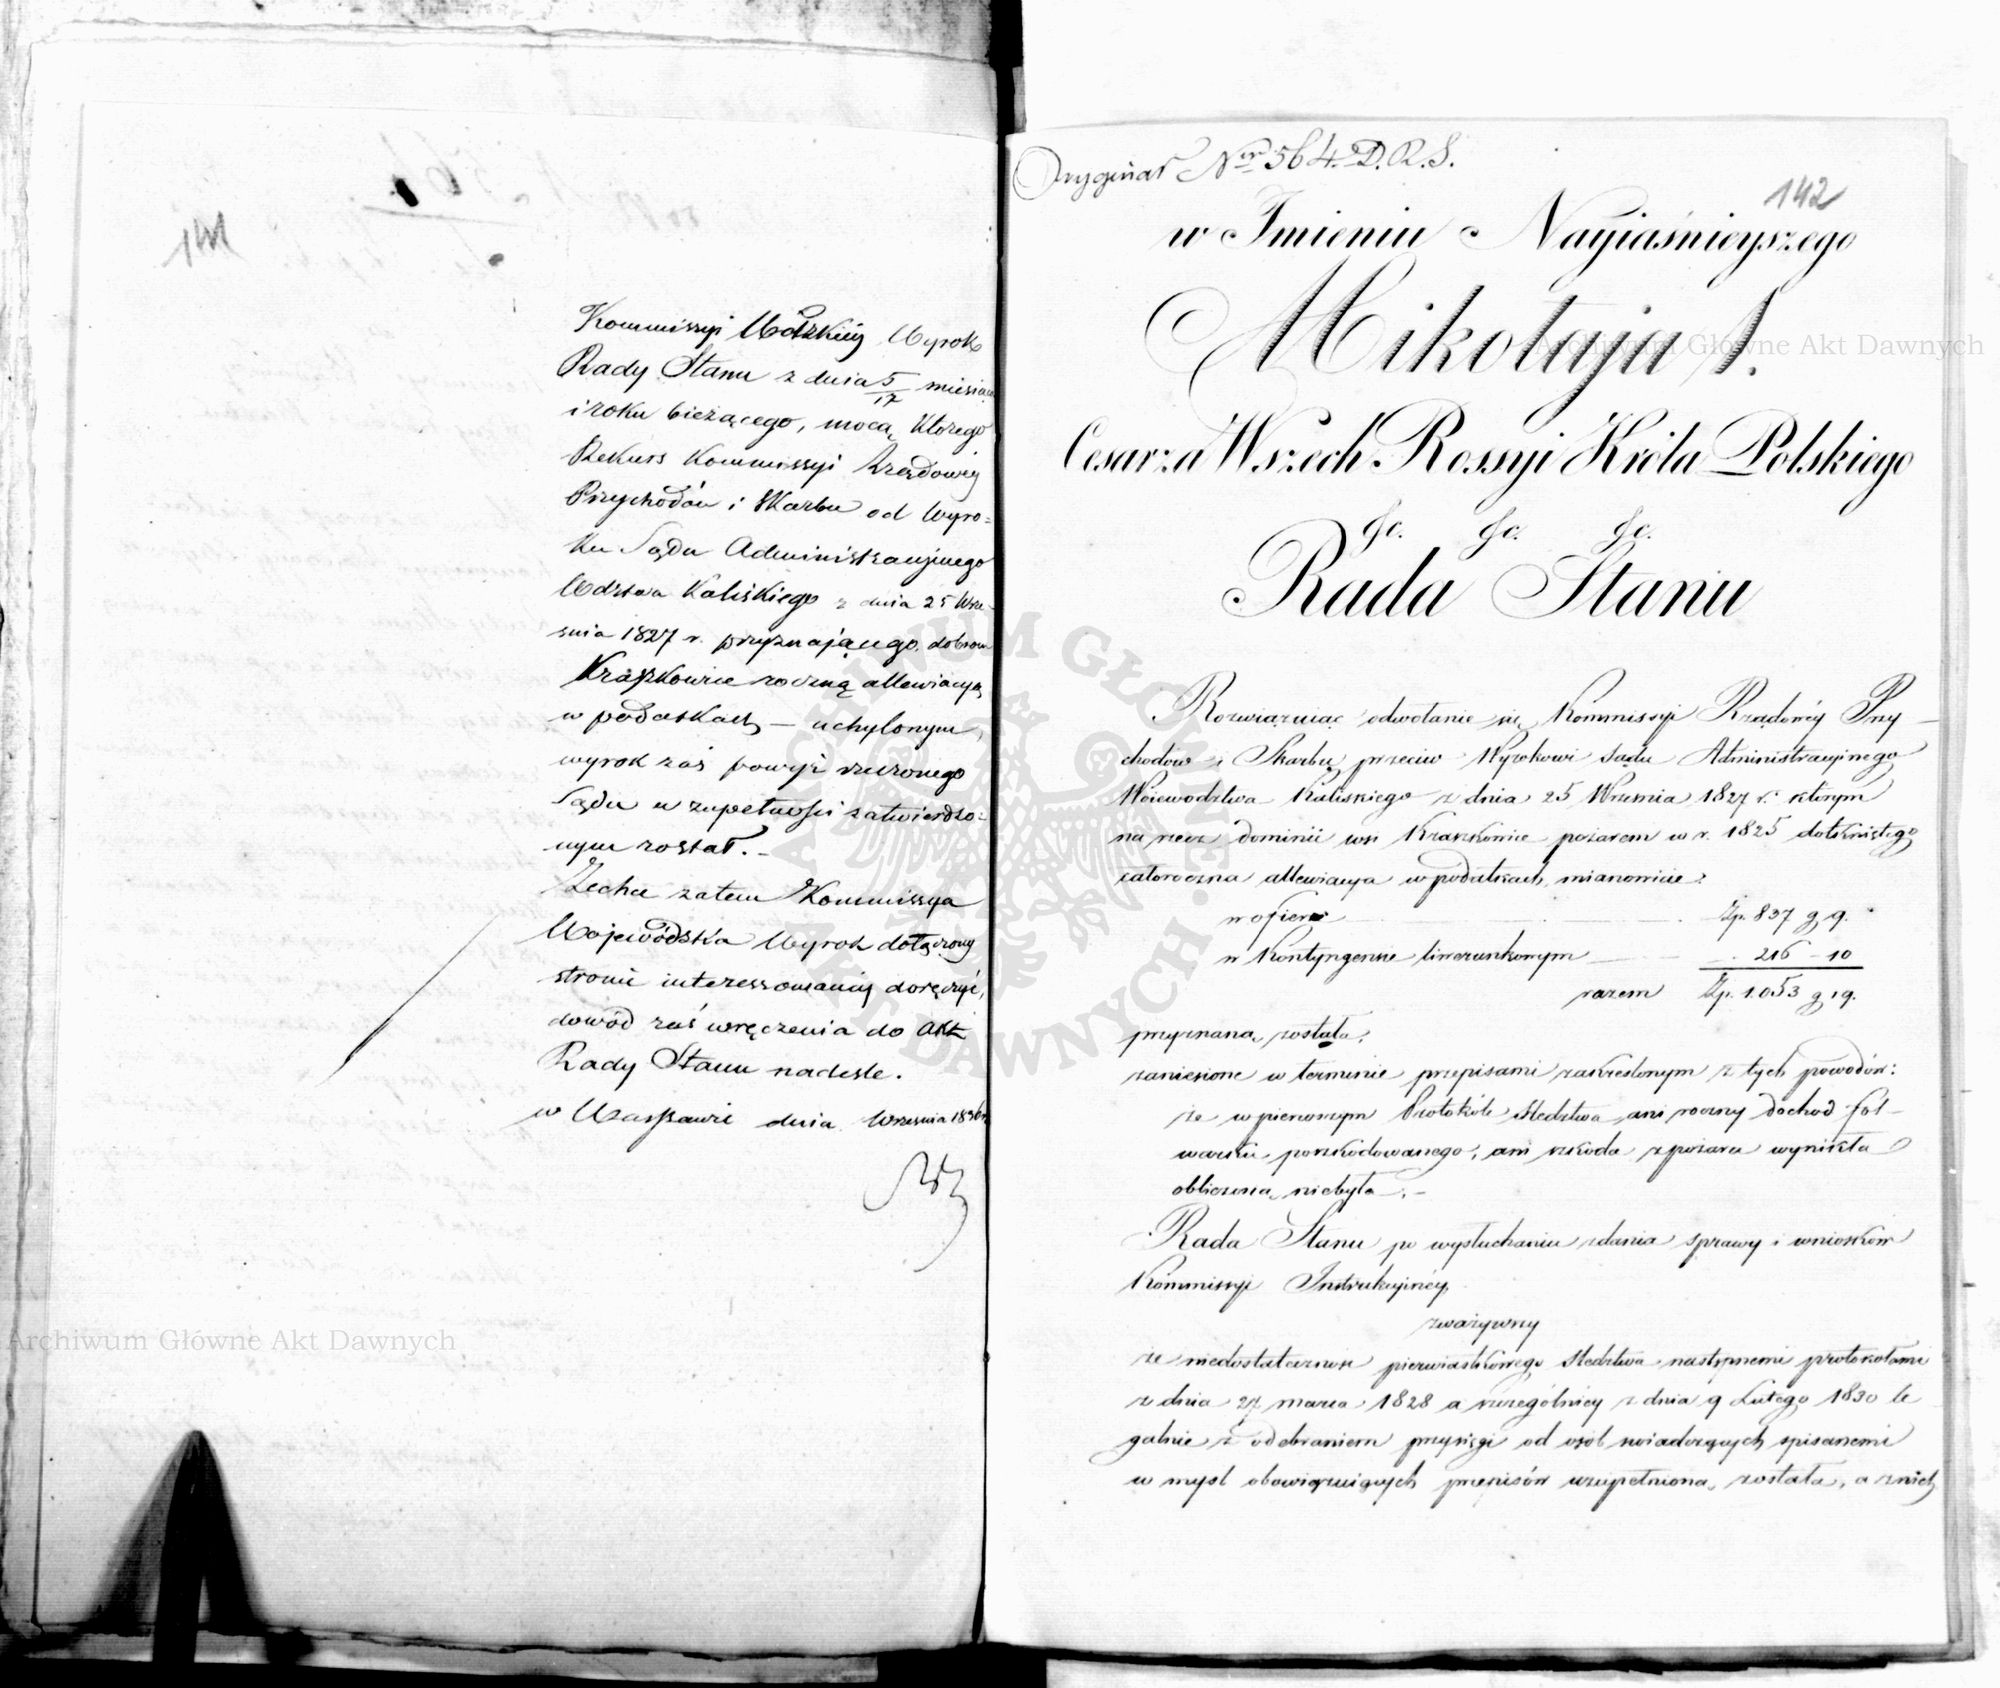 Kommissyi Wdzkiey Wyrok
Rady Stanu z dnia 5/17 miesiąca
i roku bieżącego, mocą którego
Rekurs Kommissyi Rządowey
Przychodów i Skarbu od Wyro=
ku Sądu Administracyjnego
Wdztwa Kaliskiego z dnia 25 Wrze-
snia 1827 r. przyznającego dobrom
Kraszkowice roczną allewiacyą
w podatkach — uchylonym,
wyrok zaś powyż rzeczonego
Sądu w zupełności zatwierdzo=
nym został. –
Zechce zatem Kommissya
Wojewódzka Wyrok dołączony
stronie interessowaney doręczyć,
dowód zaś wręczenia do Akt
Rady Stanu nadeśle.
w Warszawie dnia Wrzesnia 1836 r.
Oryginał Nr 564. D.R.S.
142
w Imieniu Nayiaśnieyszego
Mikołaja I.
Cesarza Wszech Rossyi Króla Polskiego
&c. &c. &c.
Rada Stanu
Rozwiązuiąc odwołanie się Kommissyi Rządowéy Przy—
chodów i Skarbu przeciw Wyrokowi Sądu Administracyinego
Woiewodztwa Kaliskiego z dnia 25 Wrzesnia 1827 r. którym
na rzecz dominii wsi Kraszkowice pożarem w r. 1825 dotkniętego
całoroczna allewiacya w podatkach, mianowicie:
w ofierze Zp. 837 g 9.
w Kontyngensie liwerunkowym 216 – 10
razem Zp. 1.053 g 19.
przyznaną została,
zaniesione w terminie przepisami zakreślonym z tych powodów:
że w pierwszym Protokóle śledztwa ani roczny dochód fol—
warku poszkodowanego, ani szkoda z pożaru wynikła
obliczoną niebyła. –
Rada Stanu po wysłuchaniu zdania sprawy i wniosków
Kommissyi Instrukcyinéy,
zważywszy
że niedostateczność pierwiastkowego śledztwa następnemi protokołami
z dnia 27 marca 1828 a szczególniey z dnia 9 Lutego 1830 le
galnie z odebraniem przysięgi od osób swiadczących spisanemi
w mysl obowiązuiących przepisów uzupełnioną została, a z nich
Archiwum Główne Akt Dawnych
Archiwum Główne Akt Dawnych
ARCHIWUM GŁÓWNE AKT DAWNYCH